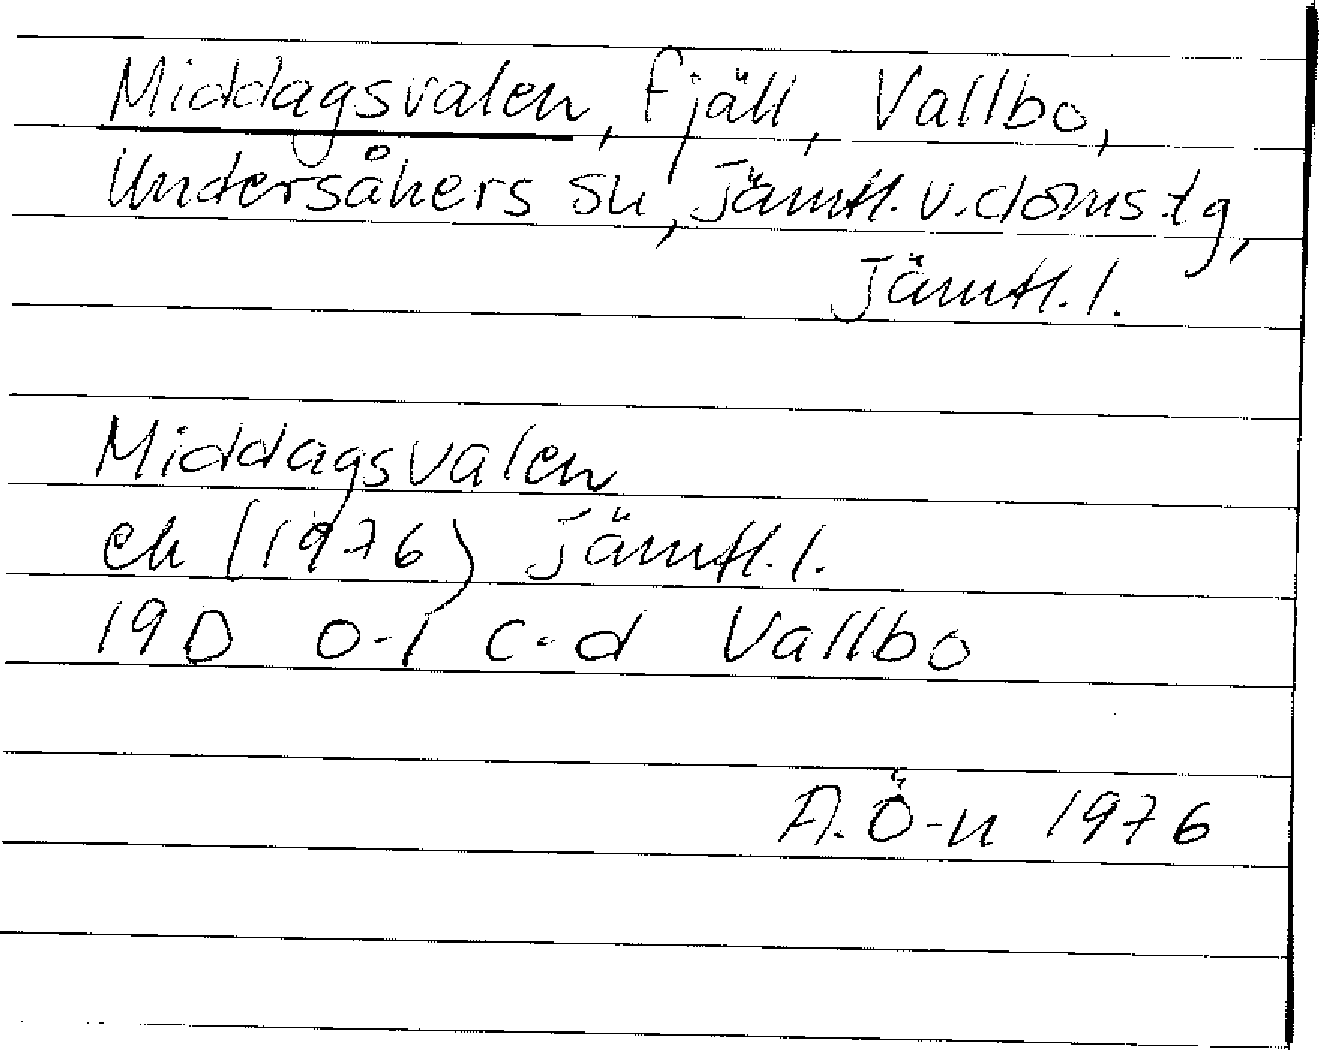 Middagsvalen, fjäll, Vallbo,
Undersåkers sn, Jämtl. v. doms. tg,
Jämtl. l.
Middagsvalen
ek (1976) Jämtl. l.
19D 0-1 c-d Vallbo
A. Ö-n 1976